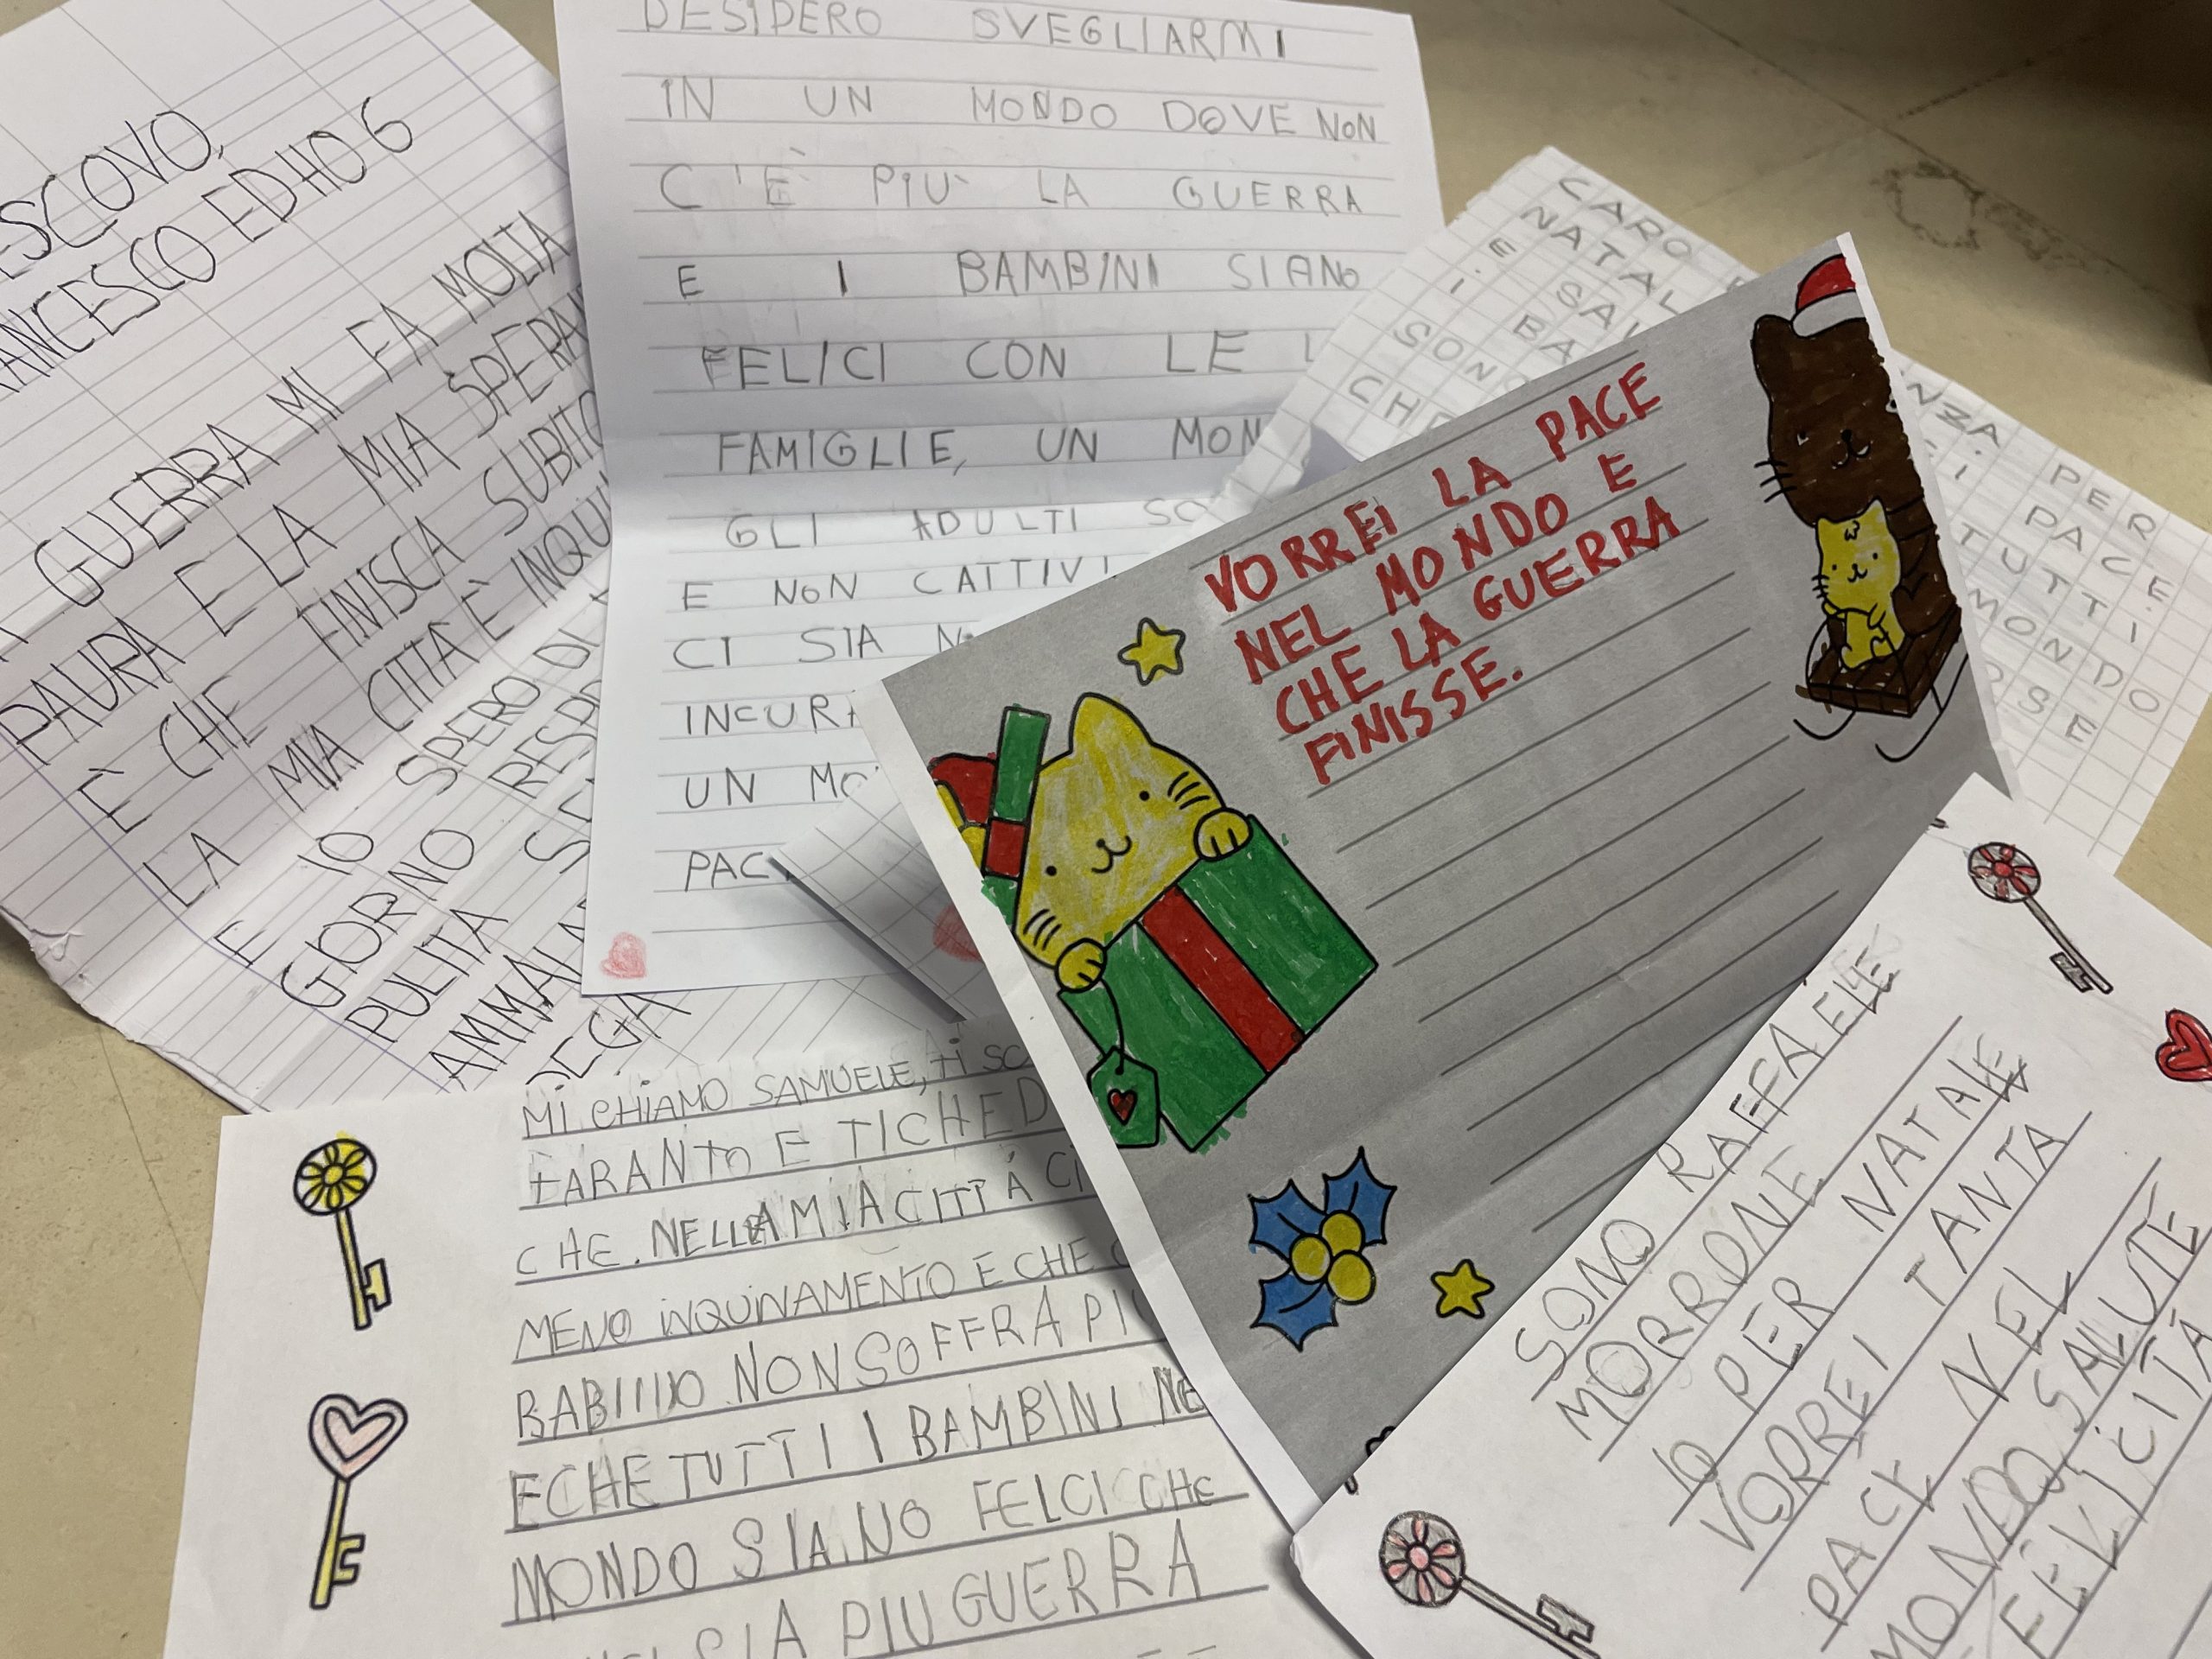 ESCOVO,
ANCESCO ED HO 6
A GUERRA MI FA MOLTA
PAURA E LA MIA SPERAN
È CHE FINISCA SUBITO
LA MIA CITTÀ È INQU
E IO SPERO DI
GORNO RESP
PULITA
AMMAL
DESIDERO SVEGLIARMI
IN UN MONDO DOVE NON
C'È PIU' LA GUERRA
E I BAMBINI SIANO
FELICI CON LE
FAMIGLIE, UN MON
GLI ADULTI SO
E NON CATTIVI
CI SIA
INCURA
UN MO
PAC
CARO
NATAL
E SA
I BA
SONO
CHE
NZA PER
PACE
TUTTI
MONDO
OSE
VORREI LA PACE
NEL MONDO E
CHE LA GUERRA
FINISSE.
MI CHIAMO SAMUELE, TI SC
TARANTO E TI CHIED
CHE. NELLA MIA CITTÀ CI
MENO INQUINAMENTO E CHE
NON SOFFRA PIU
E CHE TUTTI I BAMBINI NE
MONDO SIANO FELCI CHE
SIA PIU GUERRA
SONO RAFFAELE
MORRONE
IO PER NATALE
VORREI TANTA
PACE NEL
MONDO SALUTE
FELICITÀ